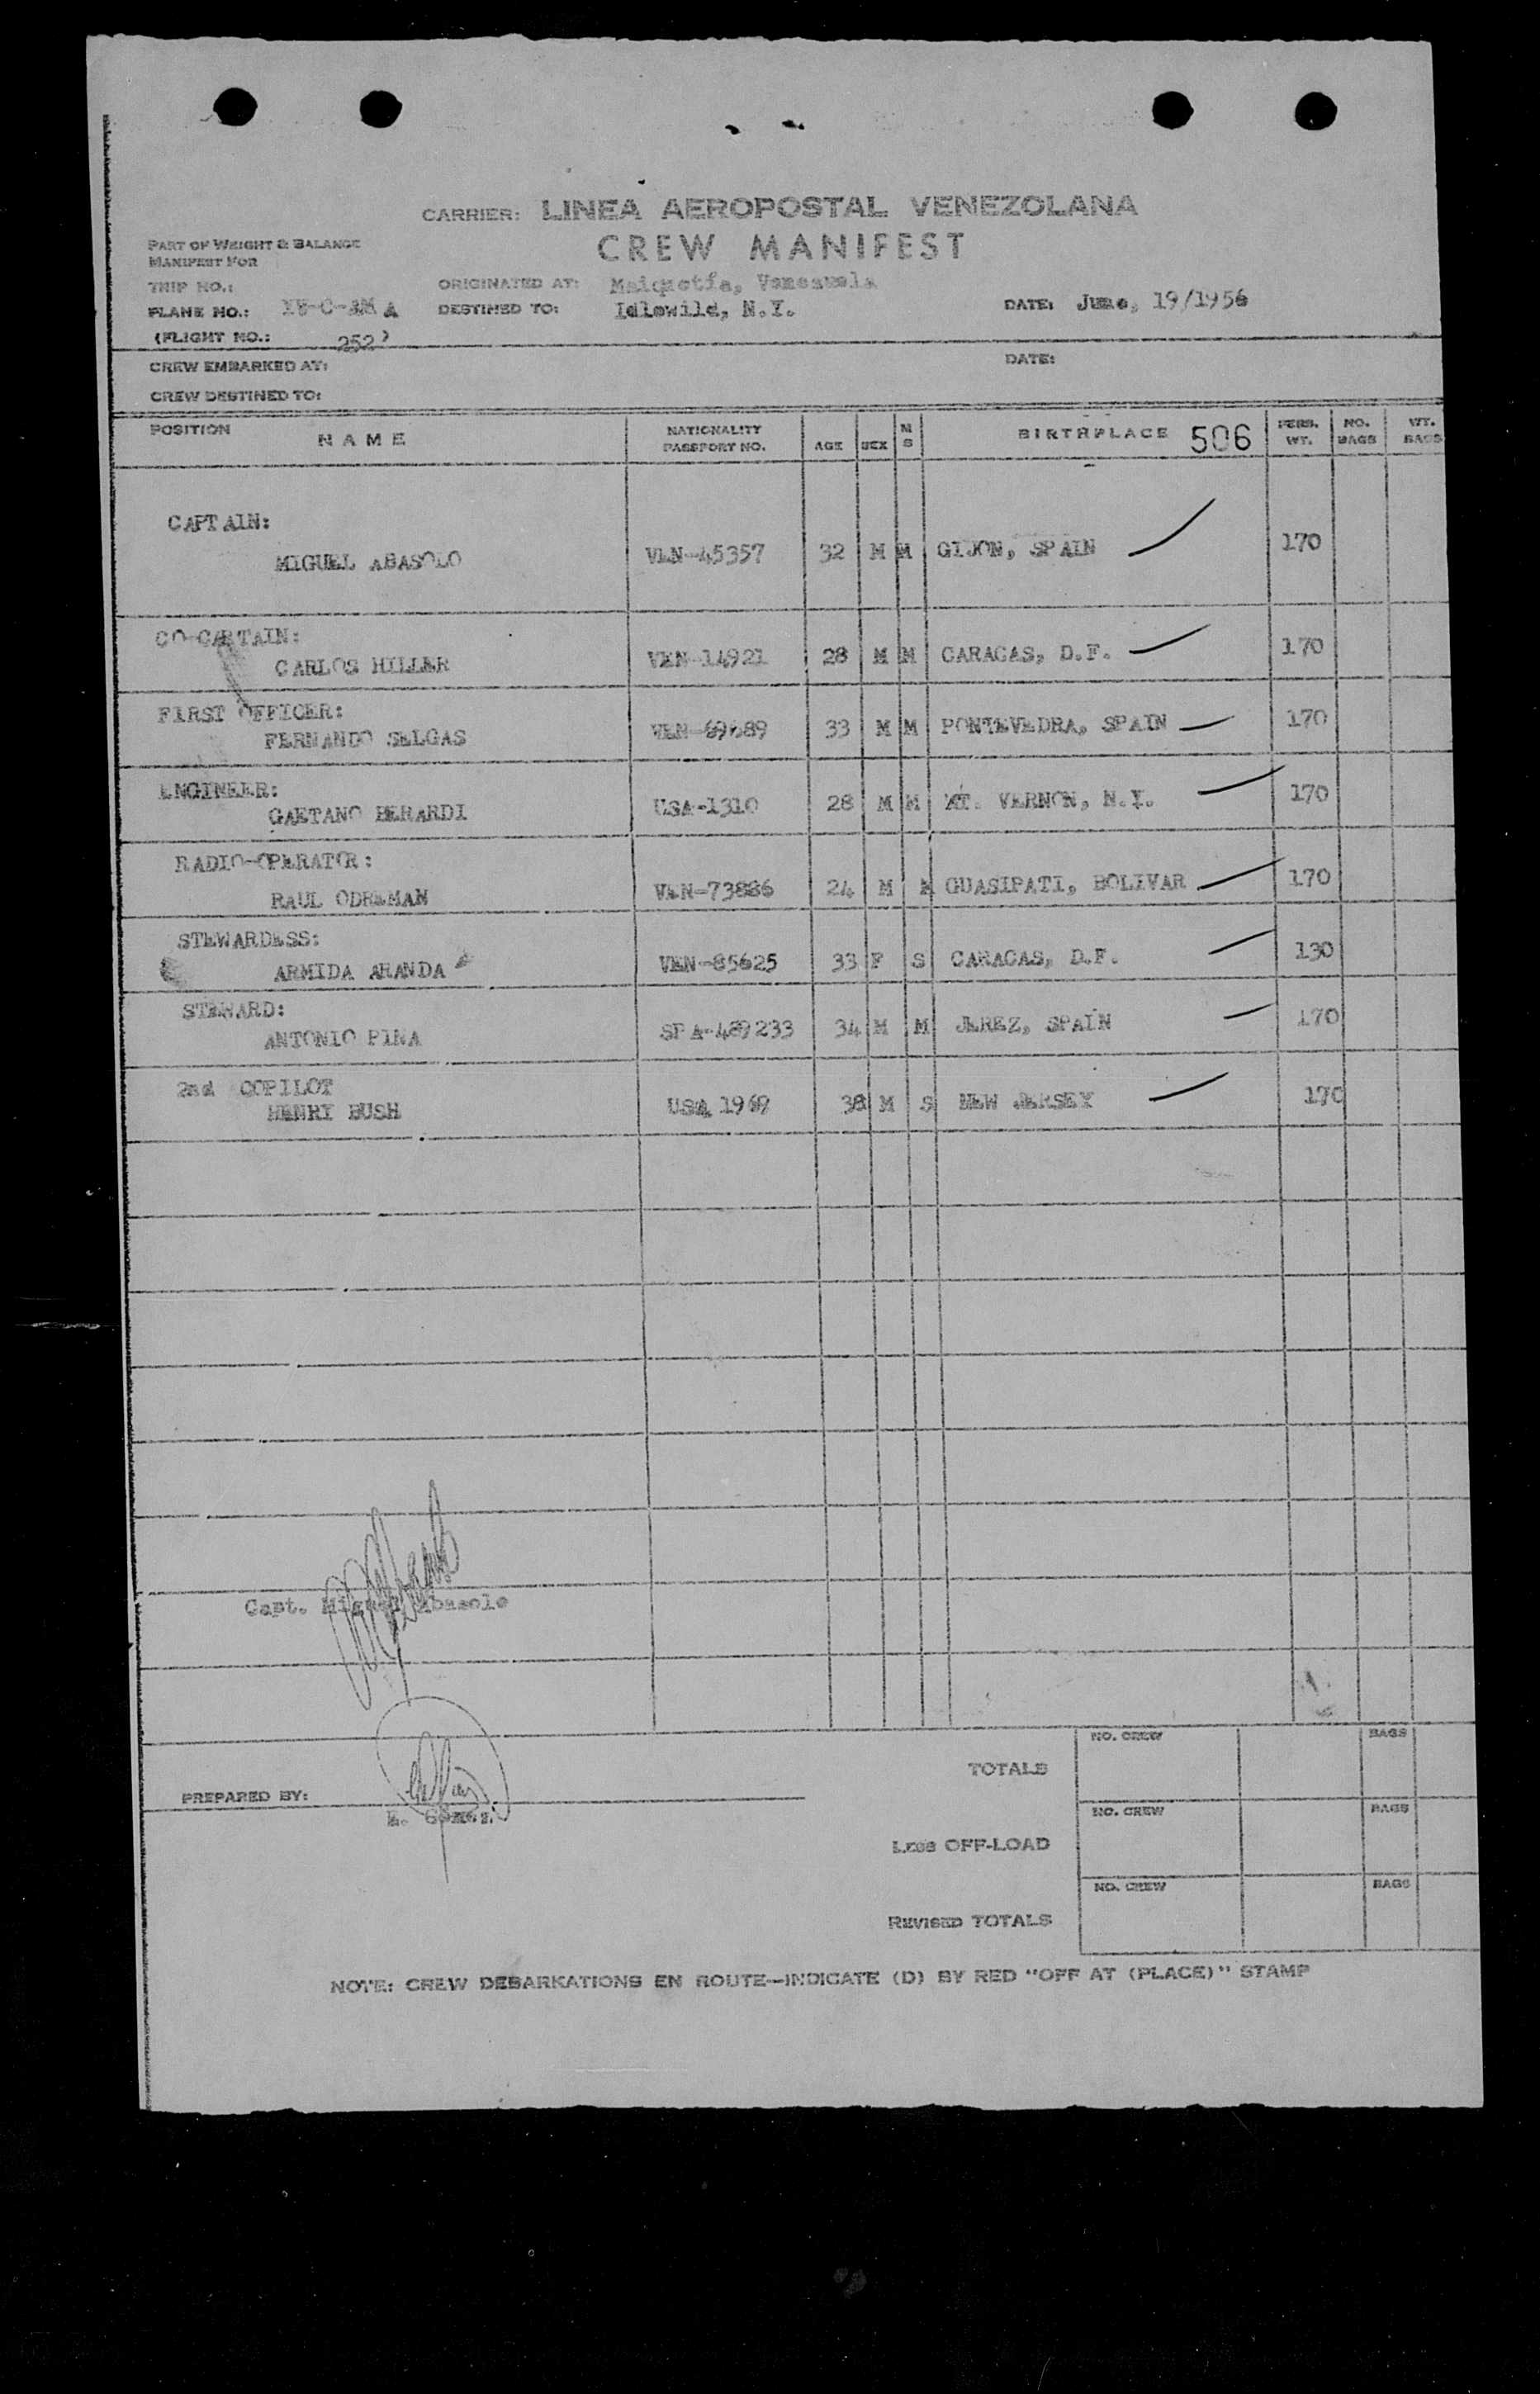 CARRIER: LINEA AEROPOSTAL VENEZOLANA
CREW MANIFEST
PART OF WEIGHT & BALANCE
MANIFEST FOR
TRIP NO.:
ORIGINATED AT: Maiquetía, Venezuela
PLANE NO.: YV-C-AMA
DESTINED TO: Idlewild, N.Y.
DATE: June, 19/1956
(FLIGHT NO.: 252)
CREW EMBARKED AT:
DATE:
CREW DESTINED TO:
POSITION NAME NATIONALITY PASSPORT NO. AGE SEX M S BIRTHPLACE 506 PERS. WT. NO. BAGS WT. BAGS
CAPTAIN:
MIGUEL ABASOLO VEN-45357 32 M M GIJON, SPAIN 170
CO-CAPTAIN:
CARLOS HILLER VEN-14921 28 M M CARACAS, D.F. 170
FIRST OFFICER:
FERNANDO SELGAS VEN-69689 33 M M PONTEVEDRA, SPAIN 170
ENGINEER:
GAETANO BERARDI USA-1310 28 M M MT. VERNON, N.Y. 170
RADIO-OPERATOR:
RAUL ODREMAN VEN-73886 24 M M GUASIPATI, BOLIVAR 170
STEWARDESS:
ARMIDA ARANDA VEN-85625 33 F S CARACAS, D.F. 130
STEWARD:
ANTONIO PINA SPA-489233 34 M M JEREZ, SPAIN 170
2nd COPILOT
HENRI BUSH USA 1969 38 M S NEW JERSEY 170
Capt. Miguel Abasolo
NO. CREW BAGS
TOTALS
PREPARED BY:
NO. CREW BAGS
LESS OFF-LOAD
NO. CREW BAGS
REVISED TOTALS
NOTE: CREW DEBARKATIONS EN ROUTE—INDICATE (D) BY RED "OFF AT (PLACE)" STAMP